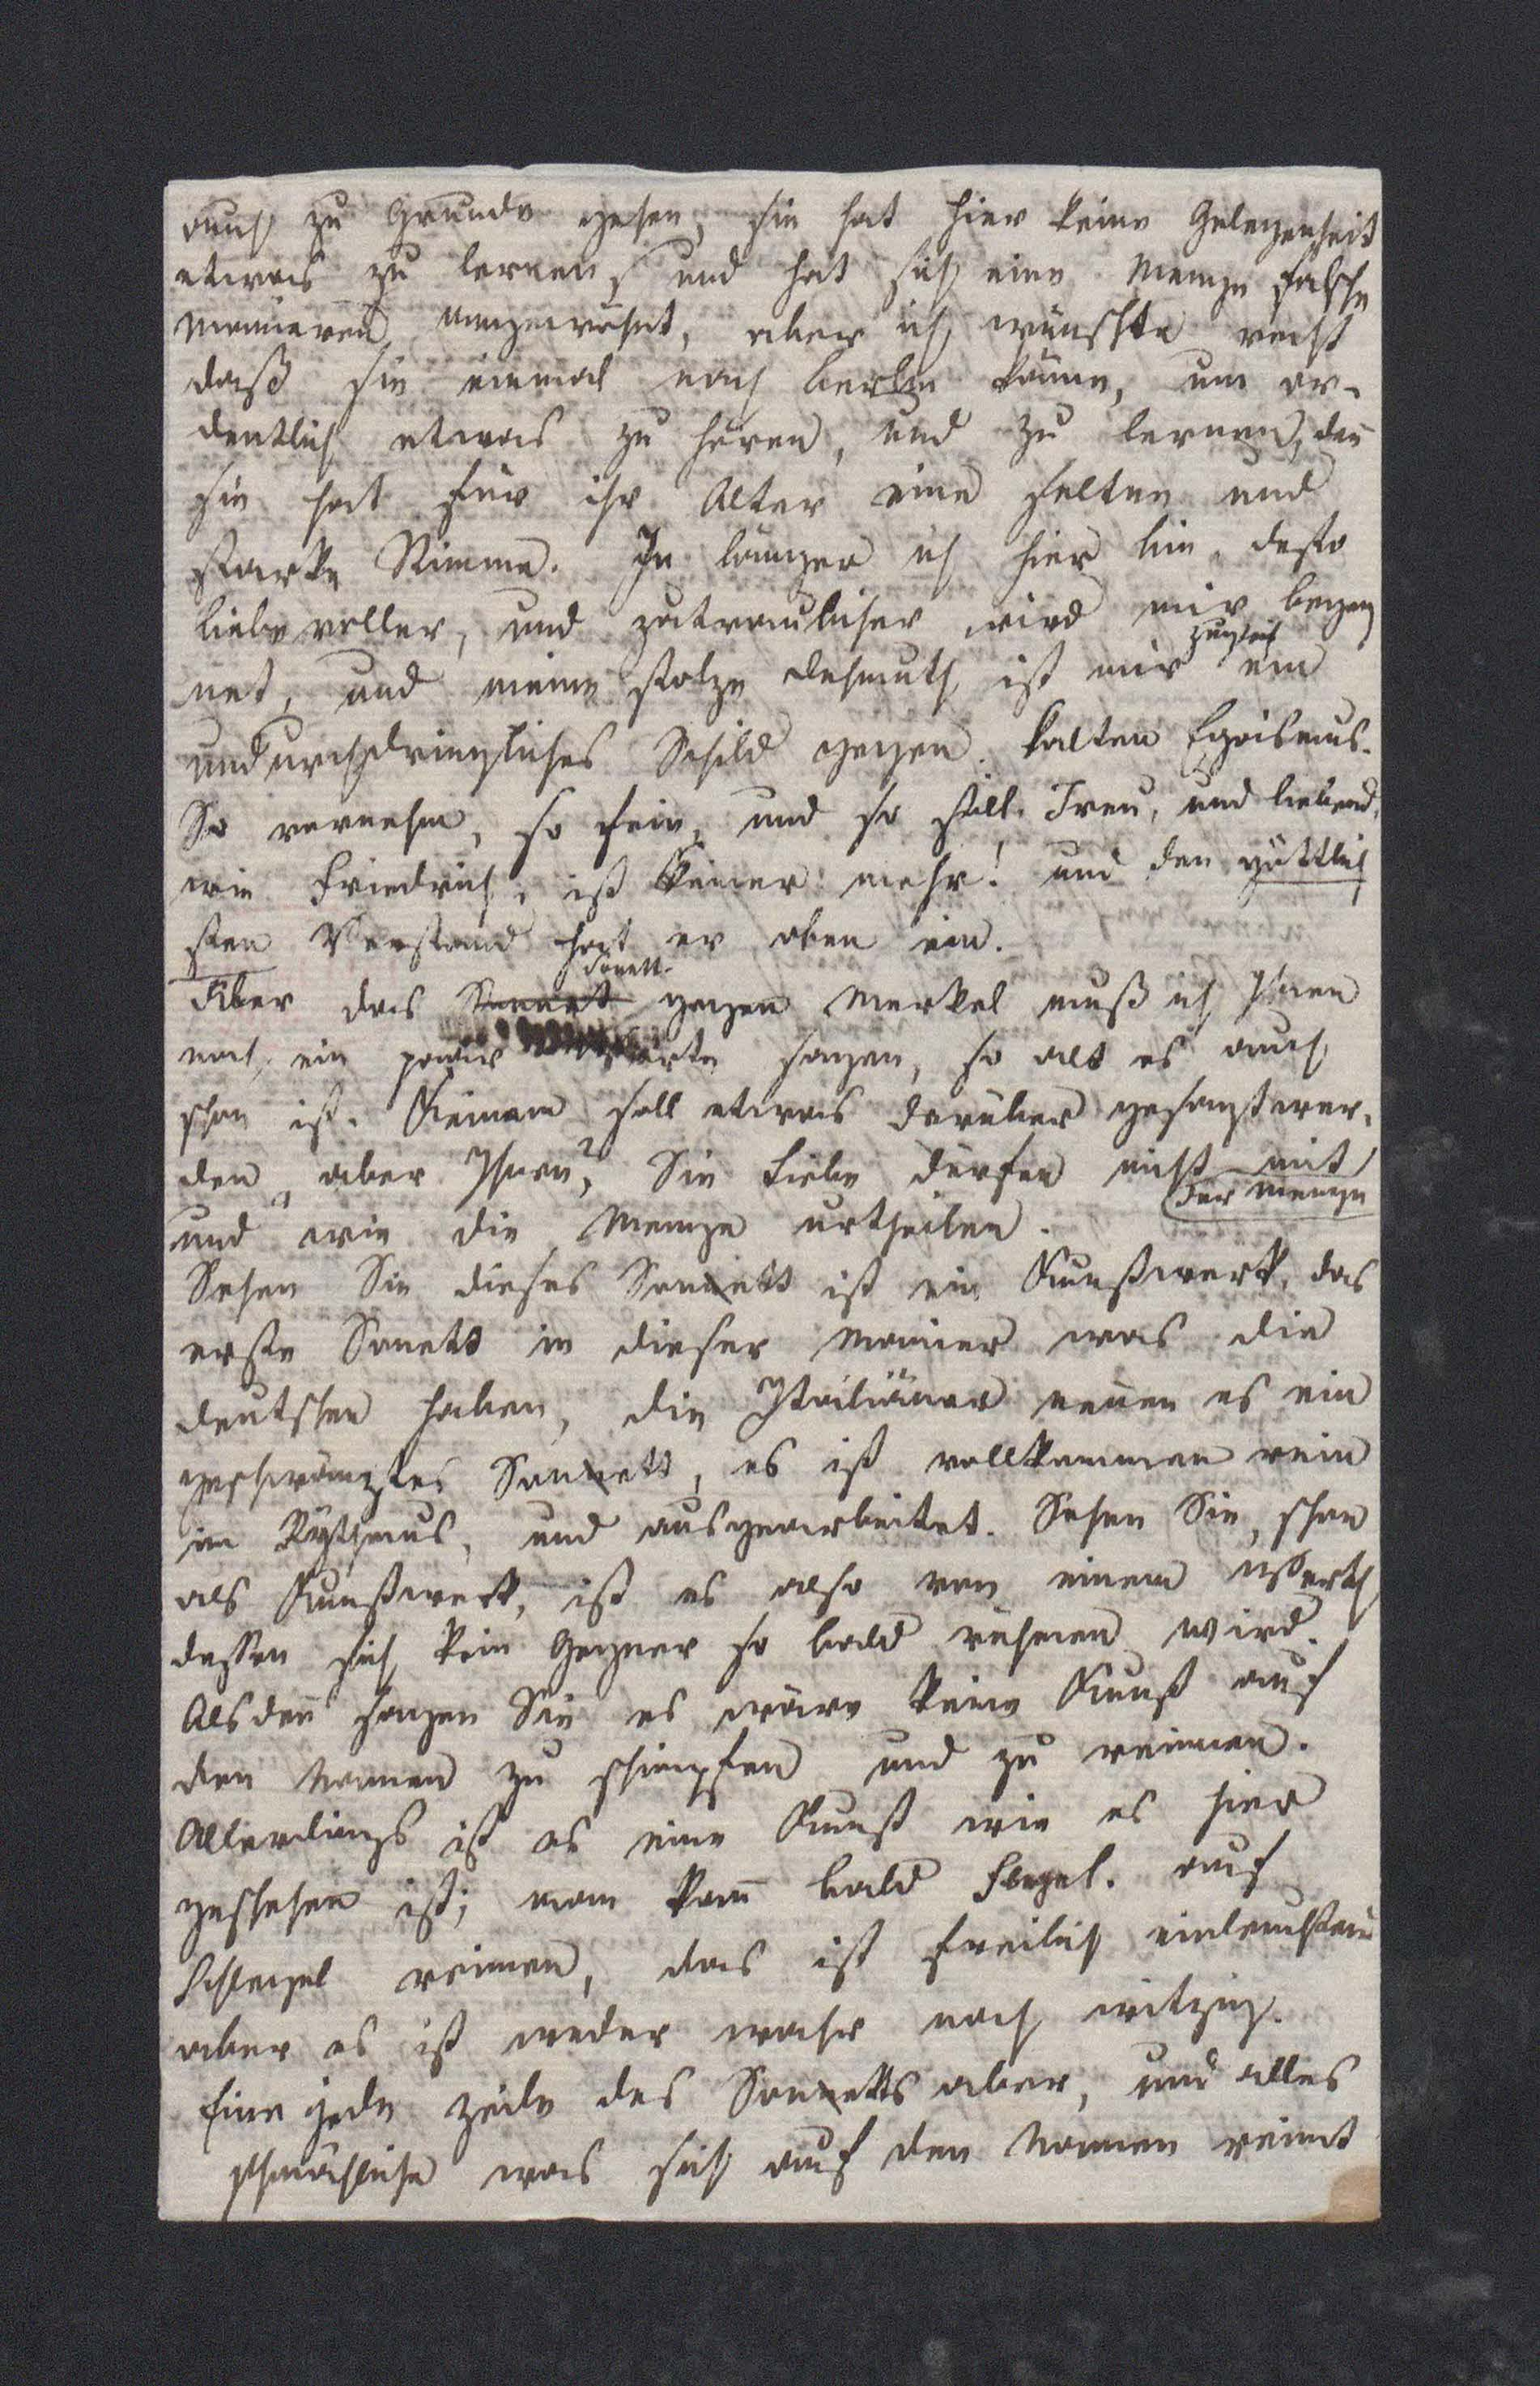 auch zu Grunde gehen, sie hat hier keine Gelegenheit
etwas zu lernen, und hat sich eine Menge falsche
Manieren angewöhnt, aber ich wünschte recht
daß sie einmal nach Berlin käme, um or-
dentlich etwas zu hören, und zu lernen, deñ
sie hat für ihr Alter eine seltne und
starke Stimme. Je länger ich hier bin, desto
liebevoller, und zutraulicher wird mir begeg
net, und meine stolze Dehmuth ist mir zugleich ein
undurchdringliches Schild gegen kalten Egoismus.
So vornehm, so fein, und so still. Treu, und liebend,
wie Friedrich, ist keiner mehr! und den göttlich
sten Verstand hat er oben ein.
Über das Sonett gegen Merkel muß ich Ihnen
noch ein paar Worte sagen, so alt es auch
schon ist. Keinem soll etwas darüber gesagt wer-
den, aber Ihnen? Sie Liebe dürfen nicht mit der Menge
und wie die Menge urtheilen.
Sehen Sie dieses Sonett ist ein Kunstwerk, das
erste Sonett in dieser Manier was die
deutschen haben, die Italiäner neñen es ein
geschwänztes Sonett, es ist vollkommen rein
im Rythmus, und ausgearbeitet. Sehen Sie, schon
als Kunstwerk, ist es also von einem Werth
dessen sich kein Gegner so bald rühmen wird.
Alsdeñ sagen Sie es wäre keine Kunst auf
den Namen zu schimpfen und zu reimen.
Allerdings ist es eine Kunst wie es hier
geschehen ist; man kañ bald Flegel. auf
Schlegel reimen, das ist freilich einleuchtend
aber es ist weder wahr noch witzig.
Eine jede Zeile des Sonetts aber, und alles
schmähliche was sich auf den Namen reimt